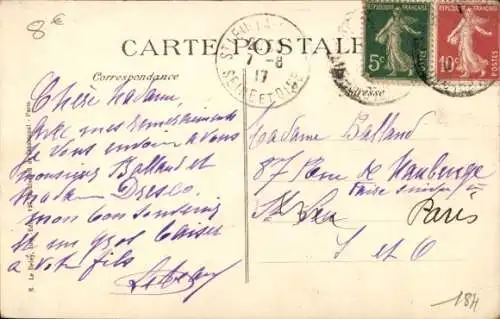 8€
CARTE POSTALE
Correspondance
Adresse
ST-LEU-TA
7-8
17
SEINE ET OISE
REPUBLIQUE FRANÇAISE
5c
REPUBLIQUE FRANÇAISE
10c
Chère Madame,
Avec mes remerciements
je vous envoir a vous
monsieur Balland et
madame
mon bon souvenir
et un gros baiser
a votre fils
Madame Balland
87 Rue de Maubeuge
Faire suivre
St Leu Paris
S et O
184